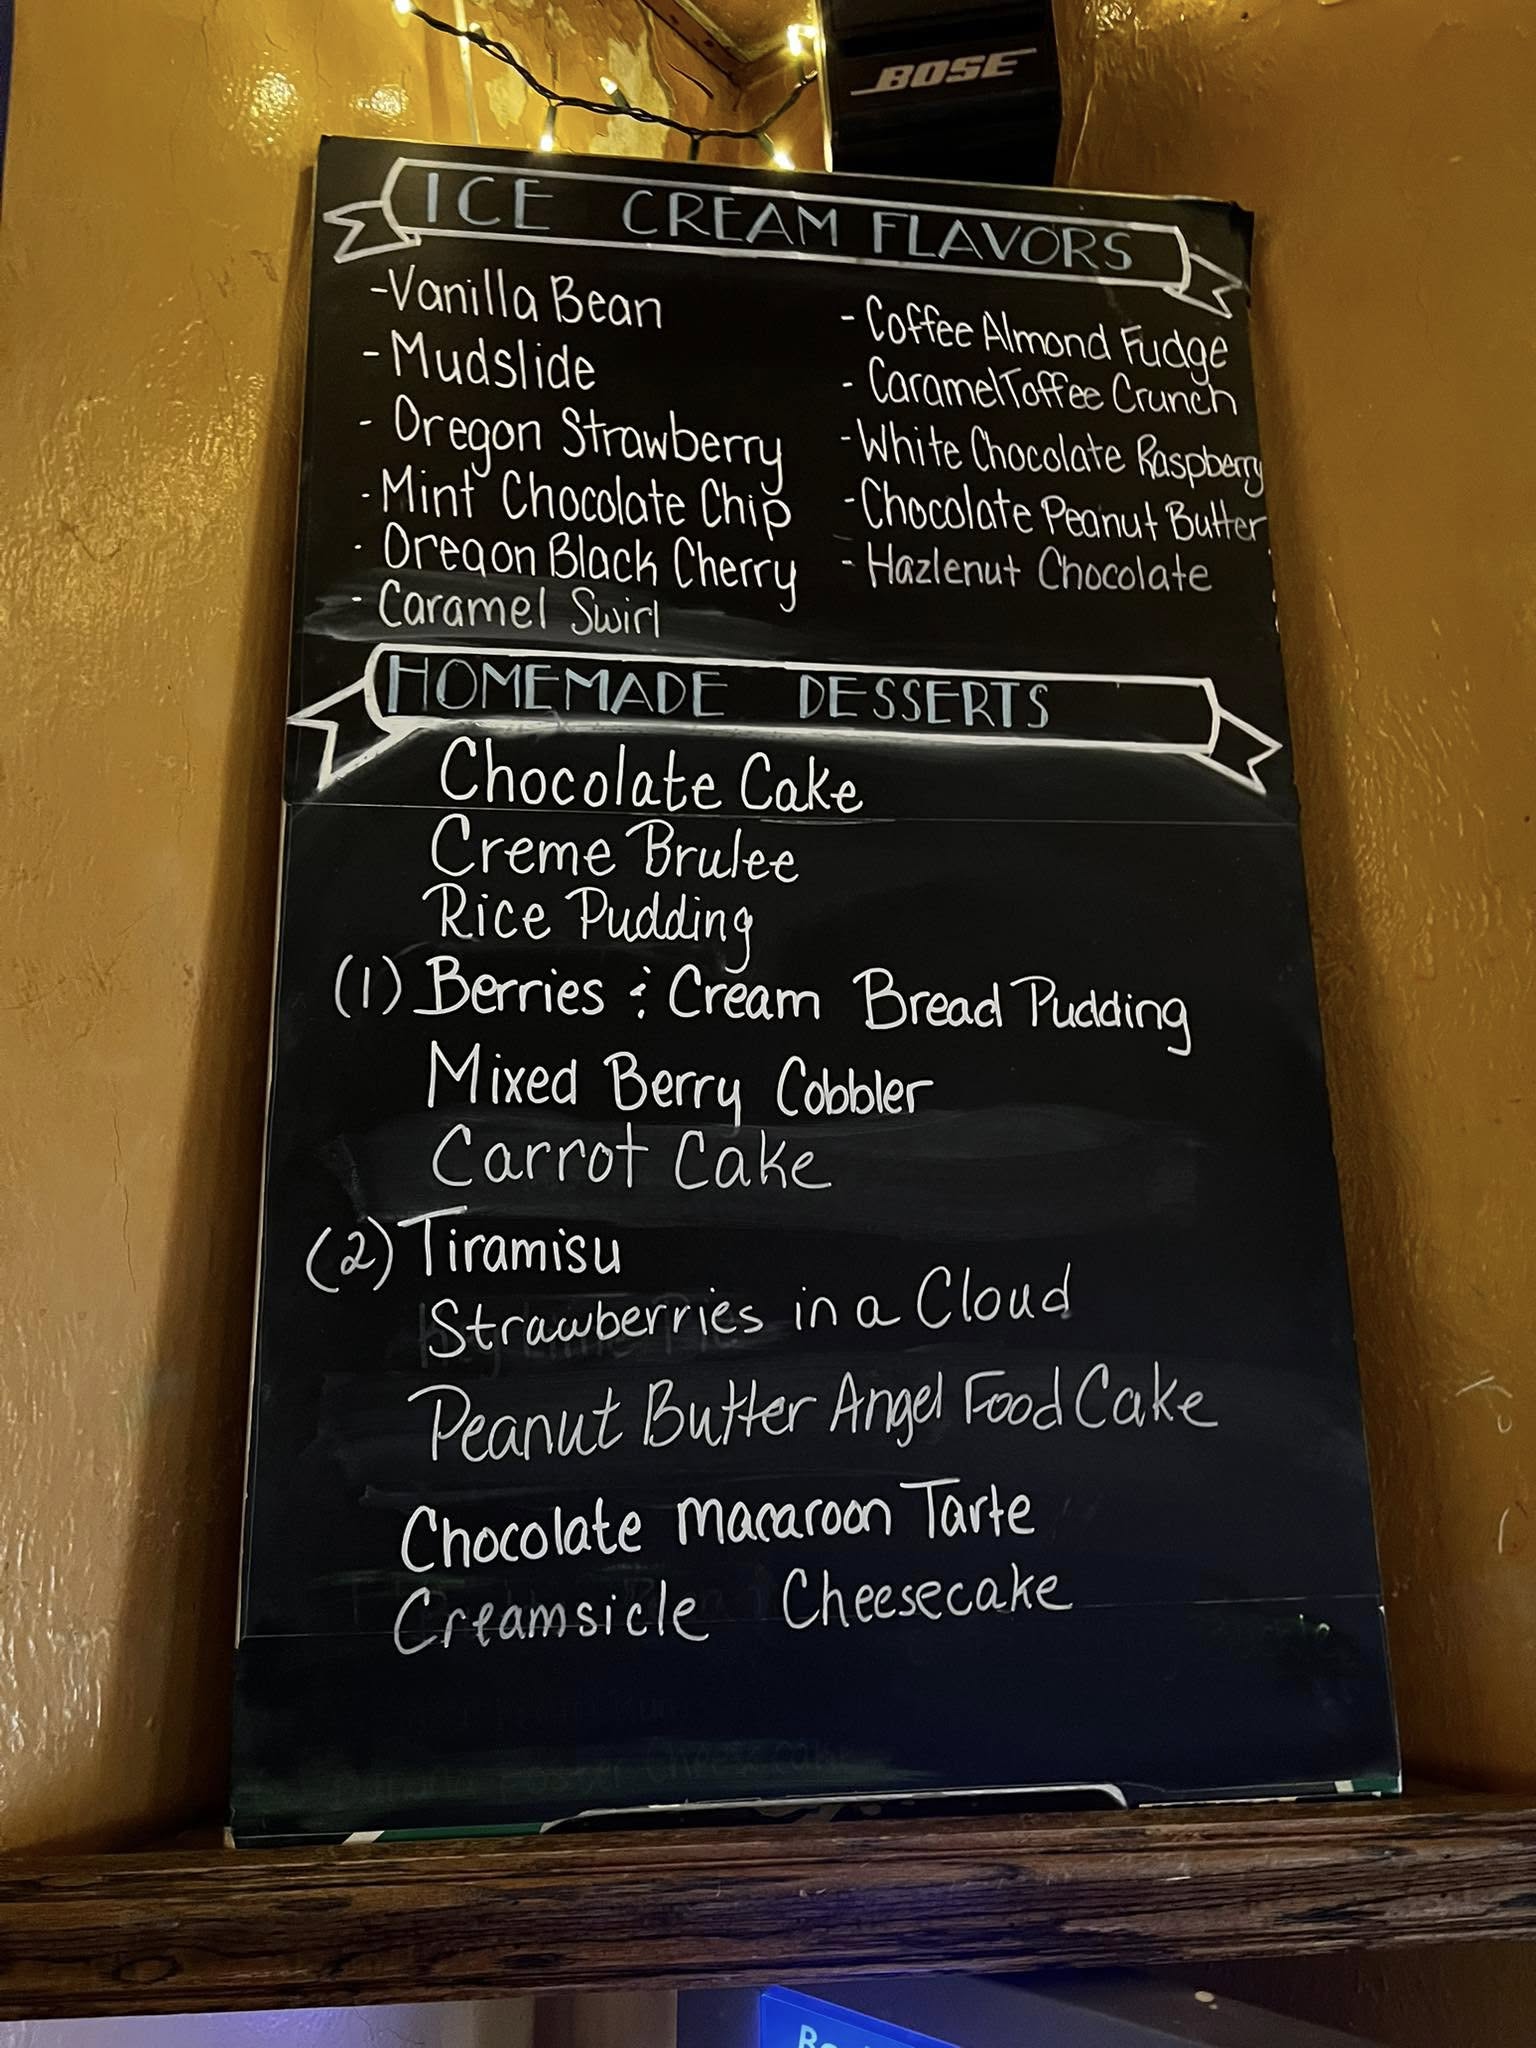 BOSE
ICE CREAM FLAVORS
-Vanilla Bean
- Mudslide
- Oregon Strawberry
- Mint Chocolate Chip
- Oregon Black Cherry
- Caramel Swirl
- Coffee Almond Fudge
- Caramel Toffee Crunch
- White Chocolate Raspberry
- Chocolate Peanut Butter
- Hazlenut Chocolate
HOMEMADE DESSERTS
Chocolate Cake
Creme Brulee
Rice Pudding
(1) Berries & Cream Bread Pudding
Mixed Berry Cobbler
Carrot Cake
(2) Tiramisu
Strawberries in a Cloud
Peanut Butter Angel Food Cake
Chocolate Macaroon Tarte
Creamsicle Cheesecake